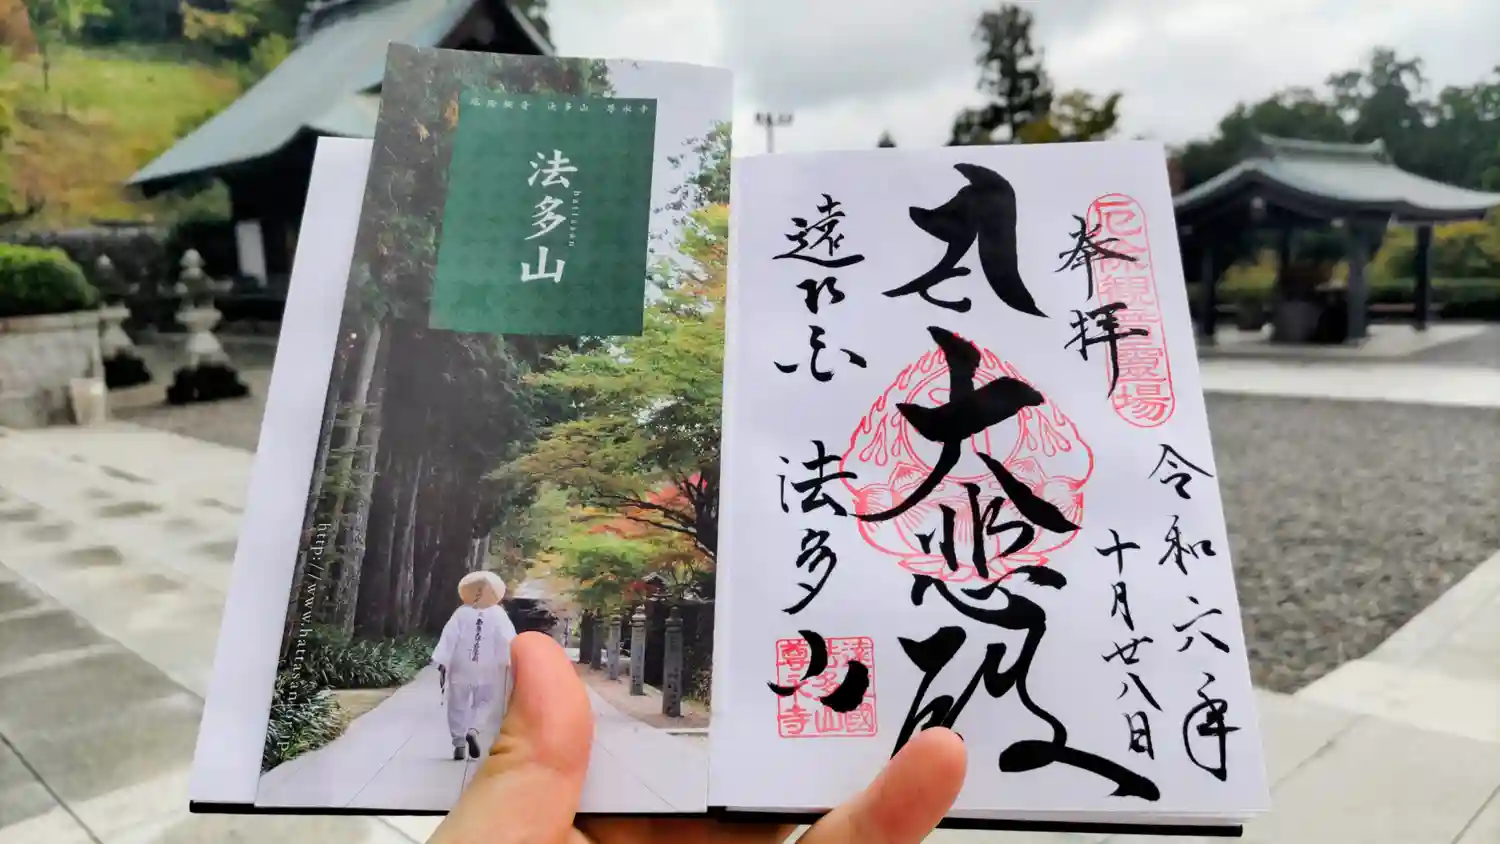 厄除観音 法多山 尊永寺
法多山
hattasan
http://www.hattasan
厄除観音霊場
奉拝
令和六年
十月廿八日
大悲殿
遠江
法多山
遠江國
法多山
尊永寺